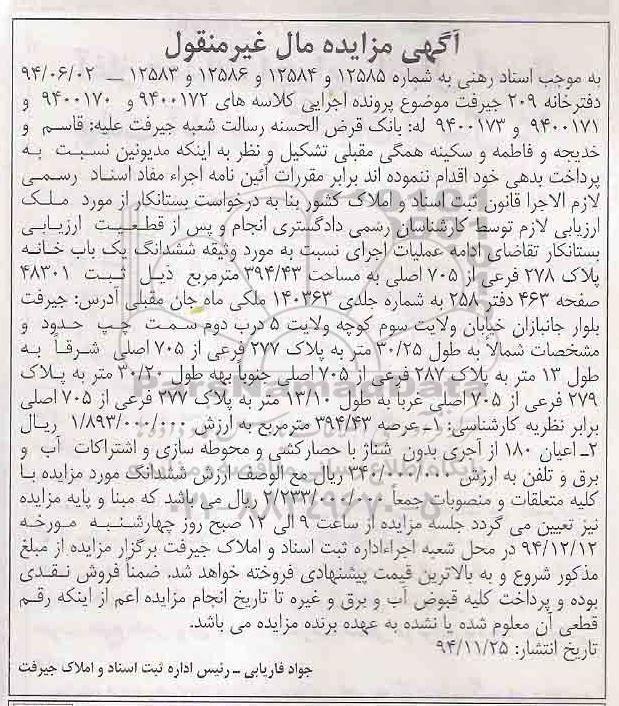 آگهی مزایده مال غیرمنقول
به موجب اسناد رهنی به شماره ۱۲۵۸۵ و ۱۲۵۸۴ و ۱۲۵۸۶ و ۱۲۵۸۳ ــ ۹۴/۰۶/۰۲
دفترخانه ۲۰۹ جیرفت موضوع پرونده اجرایی کلاسه های ۹۴۰۰۱۷۲ و ۹۴۰۰۱۷۰ و
۹۴۰۰۱۷۱ و ۹۴۰۰۱۷۳ له: بانک قرض الحسنه رسالت شعبه جیرفت علیه: قاسم و
خدیجه و فاطمه و سکینه همگی مقبلی تشکیل و نظر به اینکه مدیونین نسبت به
پرداخت بدهی خود اقدام ننموده اند برابر مقررات آئین نامه اجراء مفاد اسناد رسمی
لازم الاجرا قانون ثبت اسناد و املاک کشور بنا به درخواست بستانکار از مورد ملک
ارزیابی لازم توسط کارشناسان رسمی دادگستری انجام و پس از قطعیت ارزیابی
بستانکار تقاضای ادامه عملیات اجرای نسبت به مورد وثیقه ششدانگ یک باب خانه
پلاک ۲۷۸ فرعی از ۷۰۵ اصلی به مساحت ۳۹۴/۴۳ مترمربع ذیل ثبت ۴۸۳۰۱
صفحه ۴۶۳ دفتر ۲۵۸ به شماره جلدی ۱۴۰۳۶۳ ملکی ماه جان مقبلی آدرس: جیرفت
بلوار جانبازان خیابان ولایت سوم کوچه ولایت ۵ درب دوم سمت چپ حدود و
مشخصات شمالاً به طول ۳۰/۲۵ متر به پلاک ۲۷۷ فرعی از ۷۰۵ اصلی شرقاً به
طول ۱۳ متر به پلاک ۲۸۷ فرعی از ۷۰۵ اصلی جنوباً بهه طول ۳۰/۲۰ متر به پلاک
۲۷۹ فرعی از ۷۰۵ اصلی غرباً به طول ۱۳/۱۰ متر به پلاک ۲۷۷ فرعی از ۷۰۵ اصلی
برابر نظریه کارشناسی: ۱ـ عرصه ۳۹۴/۴۳ مترمربع به ارزش ۱/۸۹۳/۰۰۰/۰۰۰ ریال
۲ـ اعیان ۱۸۰ از آجری بدون شناژ با حصارکشی و محوطه سازی و اشتراکات آب و
برق و تلفن به ارزش ۳۴۰/۰۰۰/۰۰۰ ریال مع الوصف ارزش ششدانگ مورد مزایده با
کلیه متعلقات و منصوبات جمعاً ۲/۲۳۳/۰۰۰/۰۰۰ ریال می باشد که مبنا و پایه مزایده
نیز تعیین می گردد جلسه مزایده از ساعت ۹ الی ۱۲ صبح روز چهارشنبه مورخه
۹۴/۱۲/۱۲ در محل شعبه اجراءاداره ثبت اسناد و املاک جیرفت برگزار مزایده از مبلغ
مذکور شروع و به بالاترین قیمت پیشنهادی فروخته خواهد شد. ضمناً فروش نقدی
بوده و پرداخت کلیه قبوض آب و برق و غیره تا تاریخ انجام مزایده اعم از اینکه رقم
قطعی آن معلوم شده یا نشده به عهده برنده مزایده می باشد.
تاریخ انتشار: ۹۴/۱۱/۲۵
جواد فاریابی ـ رئیس اداره ثبت اسناد و املاک جیرفت